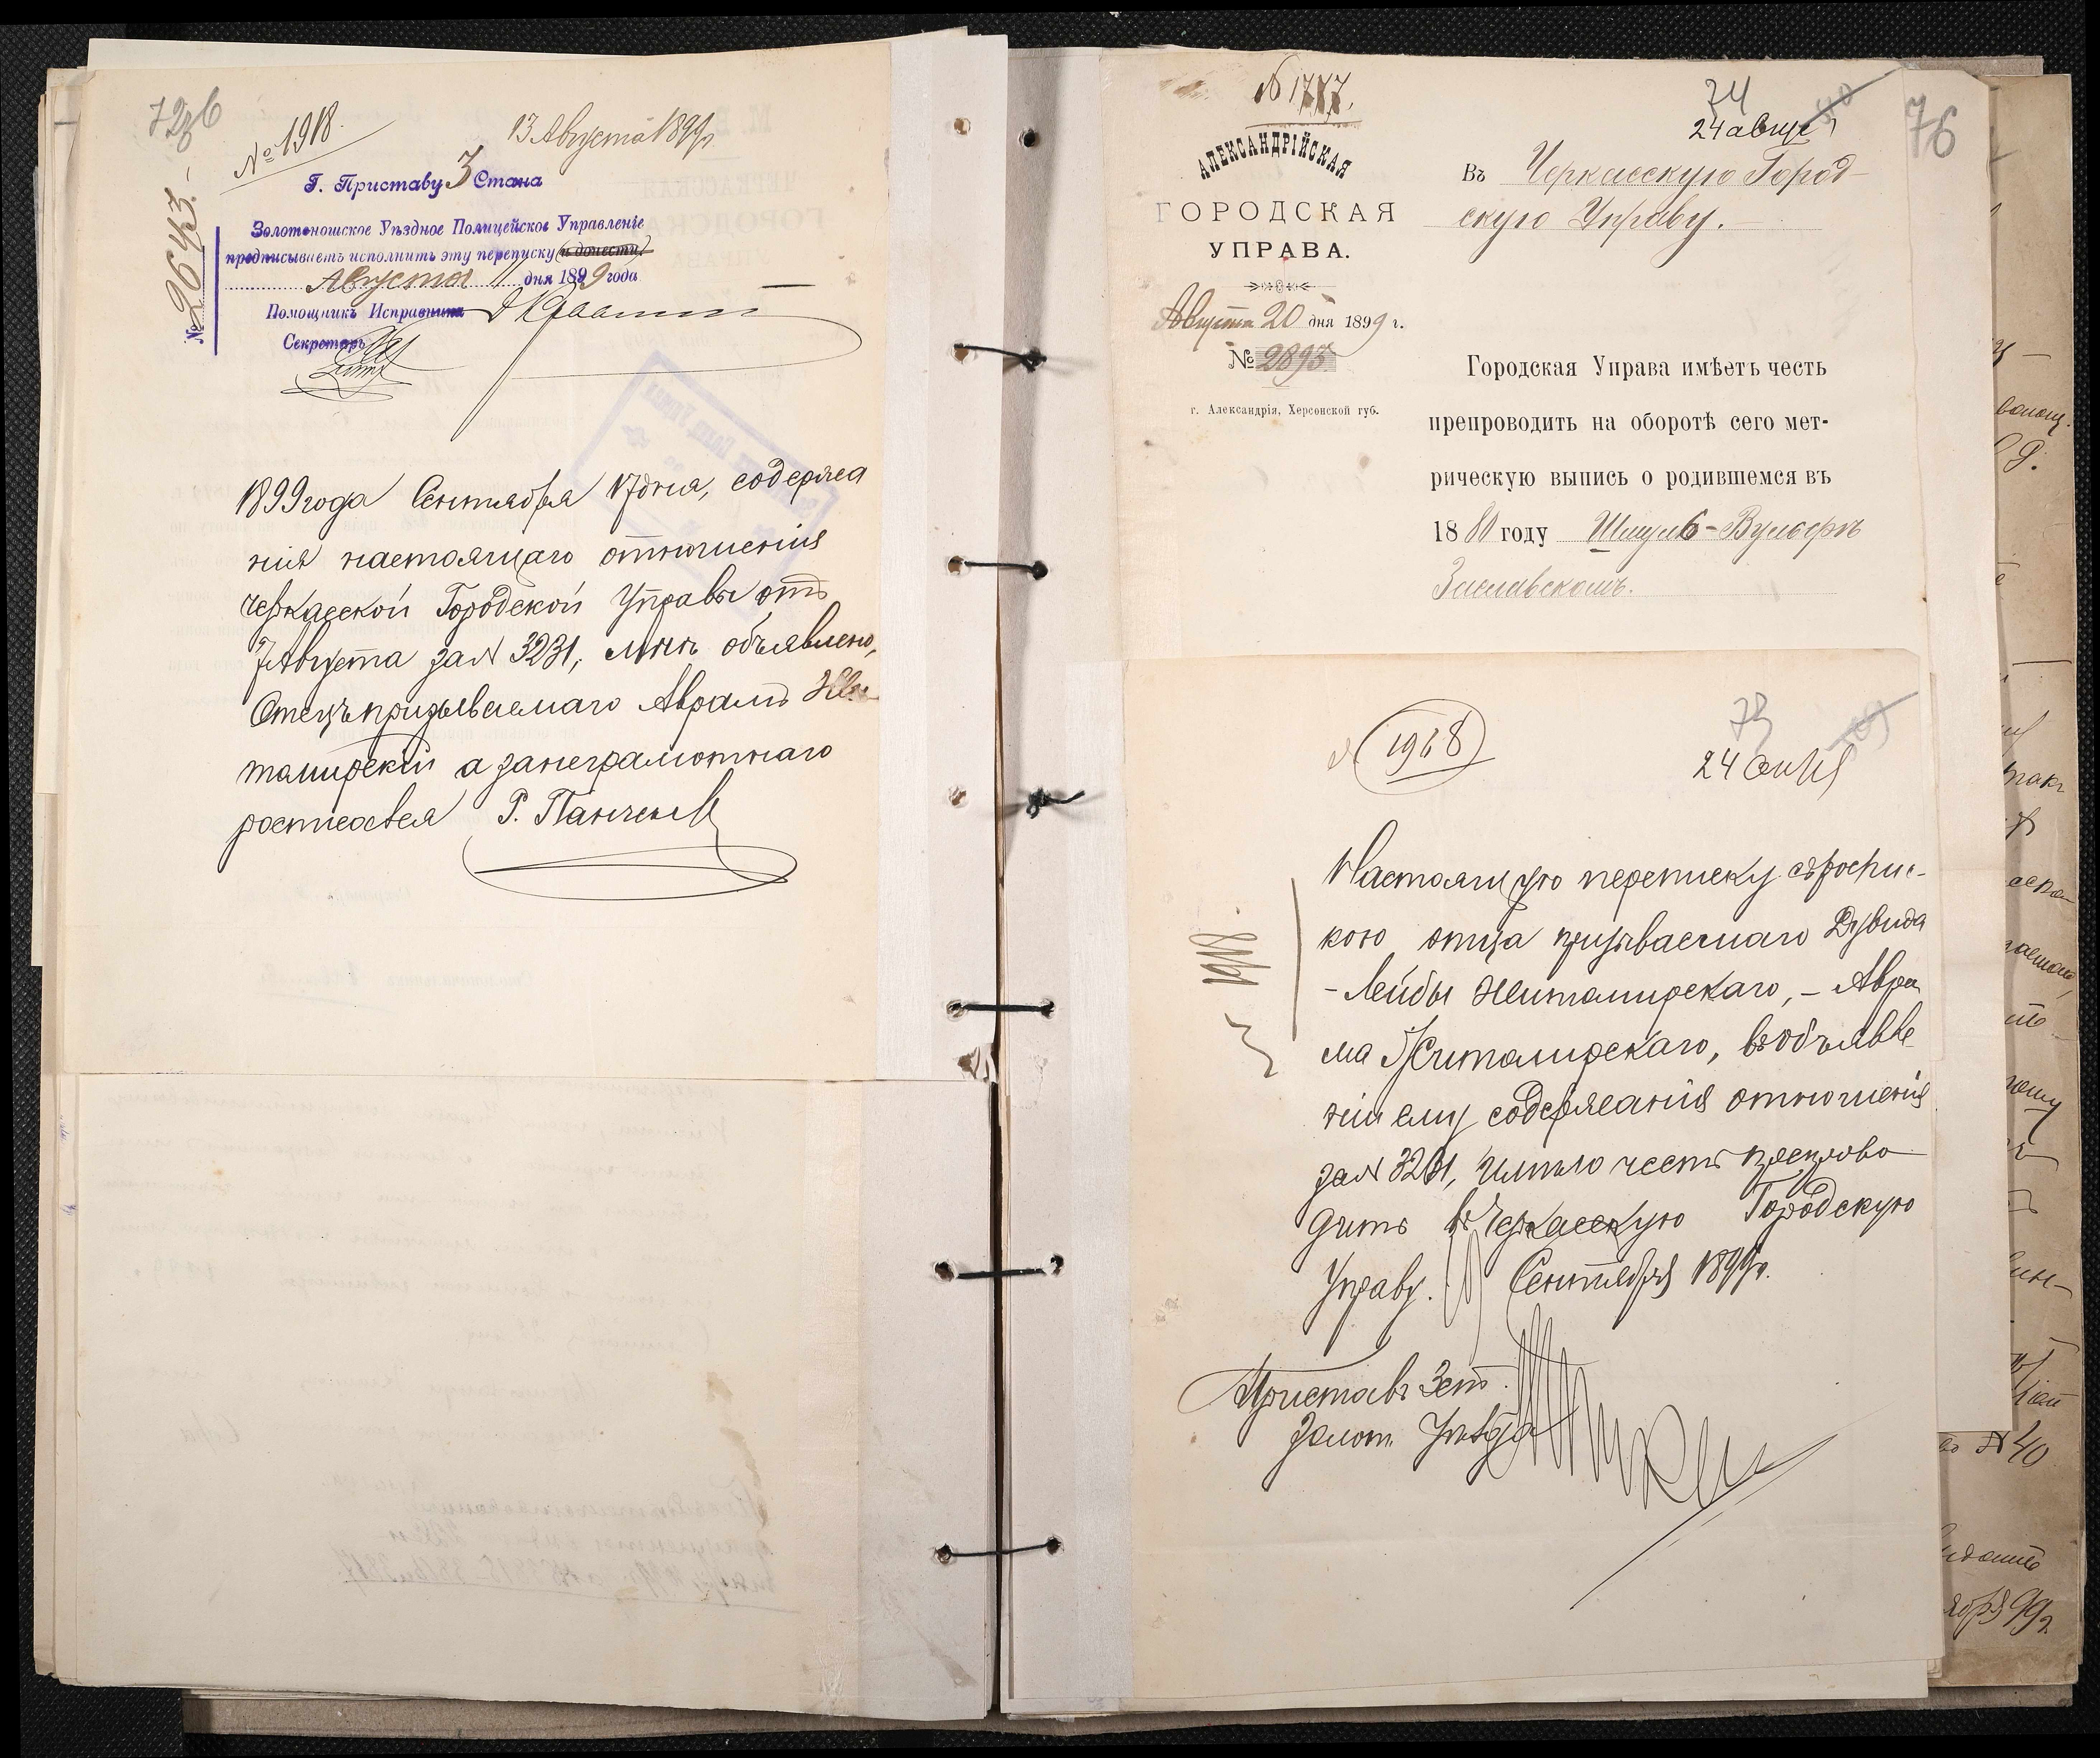 72об
№ 1918.
13 Августа 1899 г.
№ 2643.
Г. Приставу 3 Стана
Золотоношское Уѣздное Полицейское Управленіе
предписываетъ исполнить эту переписку (и донести.)
Августа 11 дня 1899 года
Помощникъ Исправника
Секретарь
1899 года Сентября 17 дня, содержа
нія настоящаго отношенія
Черкасской Городской Управы отъ
7 Августа за N 3231, мнѣ объявлено,
Отецъ призываемаго Аврамъ Жи
томирскій а занеграмотнаго
росписався Р. Панченко
№ 1777.
74
24 авгус
76
АЛЕКСАНДРІЙСКАЯ
ГОРОДСКАЯ
УПРАВА.
Августа 20 дня 1899 г.
№ 2893
г. Александрія, Херсонской губ.
Въ Черкасскую Город-
скую Управу.
Городская Управа имѣетъ честь
препроводить на оборотѣ сего мет-
рическую выпись о родившемся въ
1880 году Шмулѣ-Вульфѣ
Заславскомъ.
1968
73
24 Сент
Настоящую переписку съ роспис-
кою отца призываемаго Дувида
-Лейбы Житомирскаго, - Авра
ма Житомирскаго, въ объявле
ніи ему содержанія отношенія
за N 3231, имѣю честь препрово
дить въ Черкасскую Городскую
Управу. Сентября 1899 г.
Приставъ 3 ст.
Золот. Уѣзда